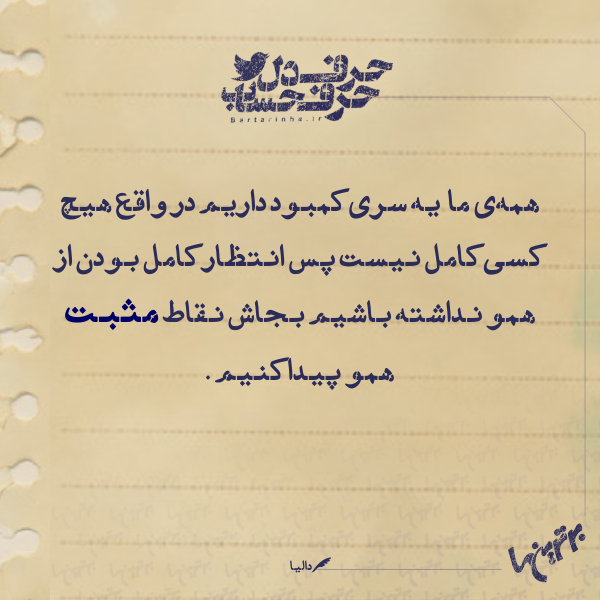 حرف دل
حرف حساب
Bartarinha.ir
همه‌ی ما یه سری کمبود داریم در واقع هیچ
کسی کامل نیست پس انتظار کامل بودن از
همو نداشته باشیم بجاش نقاط مثبت
همو پیدا کنیم .
دالیا
برترین‌ها